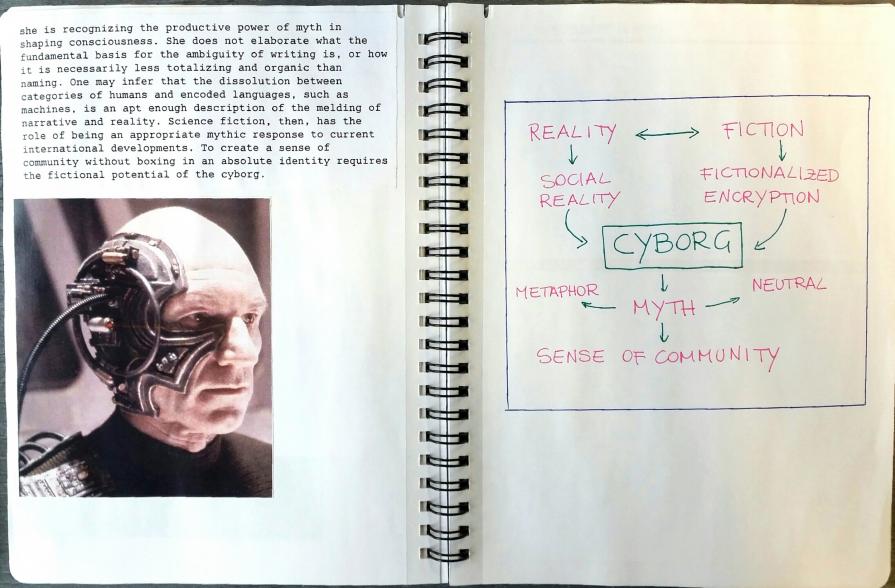 she is recognizing the productive power of myth in
shaping consciousness. She does not elaborate what the
fundamental basis for the ambiguity of writing is, or how
it is necessarily less totalizing and organic than
naming. One may infer that the dissolution between
categories of humans and encoded languages, such as
machines, is an apt enough description of the melding of
narrative and reality. Science fiction, then, has the
role of being an appropriate mythic response to current
international developments. To create a sense of
community without boxing in an absolute identity requires
the fictional potential of the cyborg.
REALITY FICTION
SOCIAL
REALITY
FICTIONALIZED
ENCRYPTION
CYBORG
METAPHOR MYTH NEUTRAL
SENSE OF COMMUNITY